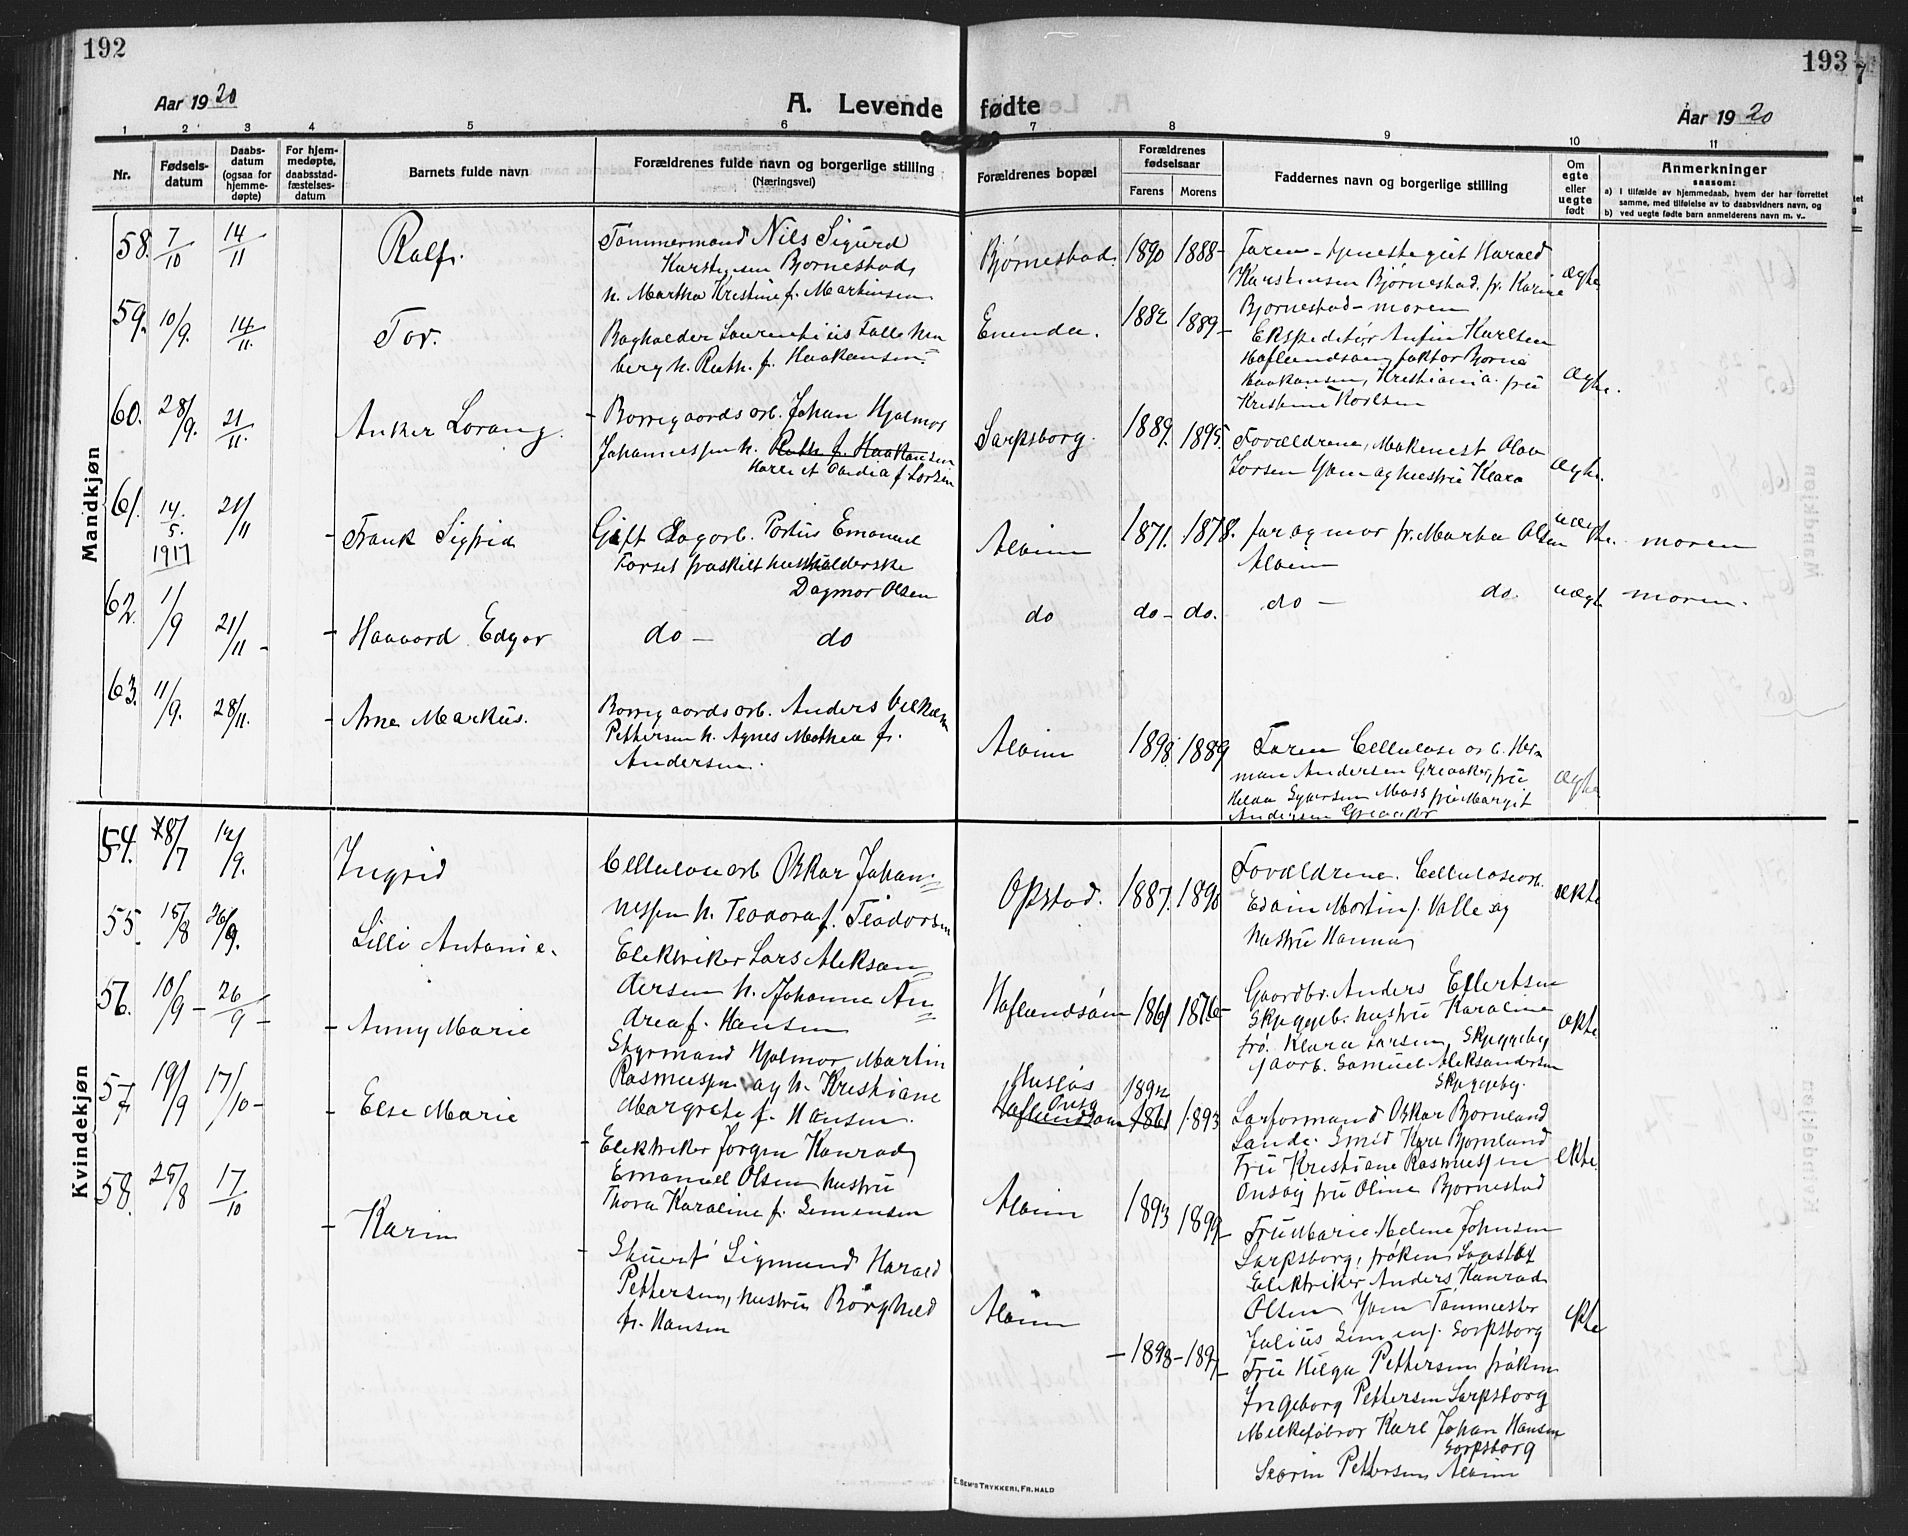 192
193
7
Aar 1920
A. Levende fødte
Aar 1920
1 2 3 4 5 6 7 8 9 10 11
Nr.
Fødsels-
datum
Daabs-
datum
(ogsaa for
hjemme-
døpte)
For hjem-
medøpte,
daabsstad-
fæstelses-
datum
Barnets fulde navn
Forældrenes fulde navn og borgerlige stilling
(Næringsvei)
Forældrenes bopæl
Forældrenes
fødselsaar
Farens Morens
Faddernes navn og borgerlige stilling
Om
egte
eller
uegte
født
Anmerkninger
saasom:
a) i tilfælde av hjemmedaab, hvem der har forrettet
samme, med tilføielse av to daabsvidners navn, og
b) ved uegte fødte barn anmelderens navn m. v.
Mandkjøn
58. 7/10 14/11 Ralf.
Tømmermand Nils Sigurd
Karstensen Bjørnestad,
h. Martha Kristine f. Martinsen
Bjørnestad. 1890 1888-
Faren - tjenestegut Harald
Karstensen Bjørnestad. fr. Karine
Bjørnestad - moren
ægte
59. 10/9. 14/11. Tor.
Bogholder Laurentius Falkenberg
h. Ruth. f. Haakansen
Enenda. 1882 1889-
Ekspeditør Anfin Karlsen
Haflundsøen, faktor Bjarne
Haakansen, Kristiania. fru
Kristine Karlsen
Ægte.
60. 28/9. 21/11. Anker Lorang.
- Borregaardsarb. Johan Hjalmar
Johannessen h. Ruth f. Haakansen
Harriet f. Larsen
Sarpsborg. 1889. 1895.
Forældrene, Olav
Larsen Hustru Klara
Ægte.
61. 14/5. 1917 21/11 - Frank Sigfrid
Gift Dagarb. Emanuel
Forset fraskilt husholderske
Dagmar Olsen
Alvim 1871. 1878.
far og mor fr. Martha Olsen
Alvim
uægte. moren
62. 1/9 21/11 - - Haavard Edgar
do - do
do do - do.
do - do. uægt moren.
63. 11/9. 28/11. - Arne Markus.
Borregaardsarb. Anders Vilhelm
Pettersen h. Agnes Mathea f.
Andersen.
Alvim 1898. 1889
Faren Cellulose arb. Her-
man Andersen Greaaker, fru
Moss fru Margit
Andersen Greaaker
Ægte
Kvindekjøn
54. 8/7 12/9. Ingrid
Cellulosearb Oskar Johan-
nessen h. Teodora f. Teodorsen
Opstad. 1887. 1890
Forældrene. Cellulosearb.
Edvin Martins. Valle og
hustru Hanna
ekte
55. 15/8 26/9. Lilli Antonie.
Elektriker Lars Aleksan-
dersen h. Johanne An-
drea f. Hansen
Haflundsøen 1861 1876-
Gaardbr. Anders Ellertsen
Skjeggeb. hustru Karoline
frø. Klara Larsen, Skjeggeby
gaarb. Samuel Aleksandersen
Skjeggeby.
ekte
56. 10/9 - 26/9 - - Anny Marie
Styrmand Hjalmar Martin
Rasmussen og h. Kristiane
Margrete f. Hansen.
Husløs
Onsø
Haflundsøen 1892 1861 1893
Larformand Oskar Bjørnland
Lande. Smed Kare Bjørnland
Fru Kristiane Rasmussen
Onsøy fru Oline Bjørnestad
ekte.
57. 19/9 17/10 - - Else Marie
- Elektriker Jørgen Konrad
Emanuel Olsen hustru
Thora Karoline f. Simensen
Alvim 1893 1899-
Fru Marie Helene Johnsen
Sarpsborg, frøken
Elektriker Anders Konrad
Olsen
Julius Simens. Sarpsborg
ekte
58. 25/8 17/10 - Karin
- Stuert Sigmund Harald
Pettersen, hustru Borghild
f. Hansen
Alvim - 1898 - 189
Fru Helga Pettersen frøken
Ingeborg Pettersen Sarpsborg
Karl Johan Hansen
Sarpsborg
Pettersen Alvim
E. SEM'S TRYKKERI, FR. HALD